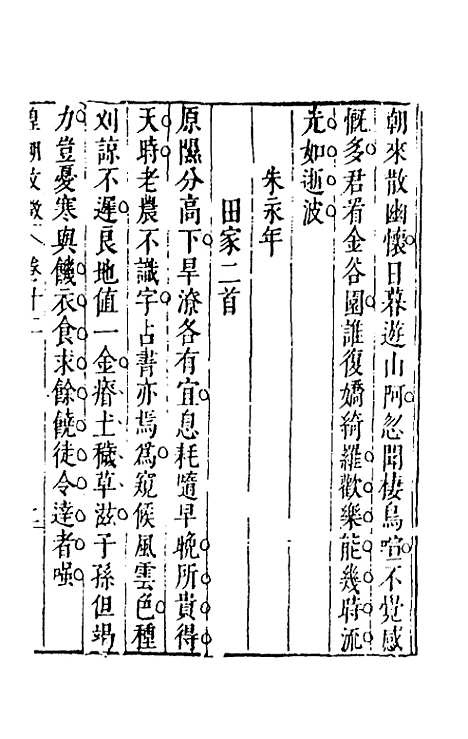 朝來散幽懷日暮遊山阿忽聞棲鳥喧不覺感
慨多君看金谷園誰復嬌綺羅歡樂能幾時流
光如逝波
朱永年
田家二首
原隰分高下旱潦各有宜息耗隨早晚所貴得
天時老農不識字占書亦焉為窺候風雲色種
刈諒不遲良地值一金瘠土穢草滋子孫但竭
力豈憂寒與饑衣食求餘饒徒令達者嗤
皇朝文徵 卷十二